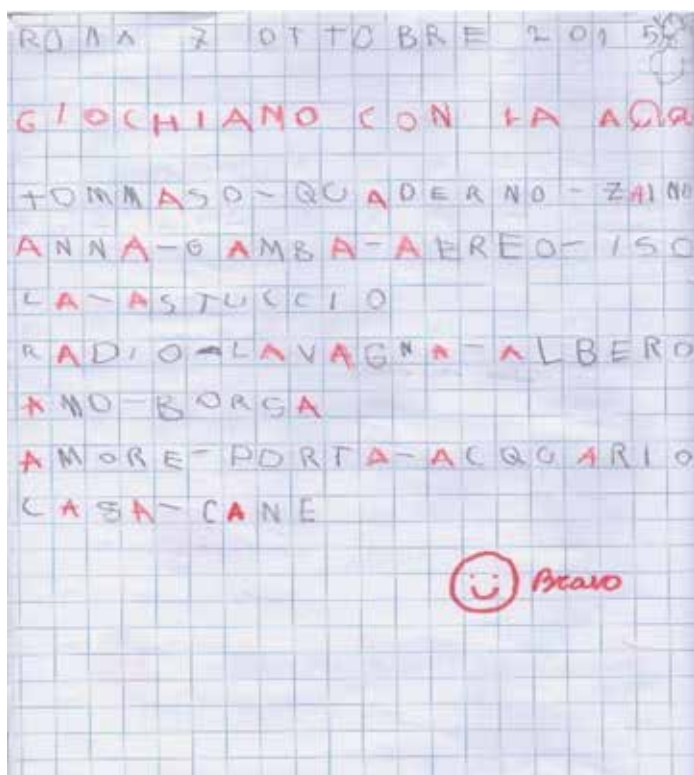 ROMA 7 OTTOBRE 2015
GIOCHIAMO CON LA A
TOMMASO-QUADERNO-ZAINO
ANNA-GAMBA-AEREO-ISO
LA-ASTUCCIO
RADIO-LAVAGNA-ALBERO
AMO-BORSA
AMORE-PORTA-ACQUARIO
CASA-CANE
Bravo